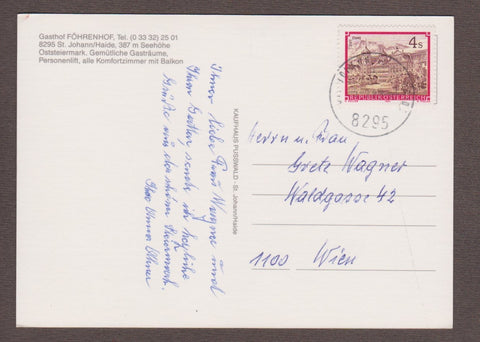 Gasthof FÖHRENHOF, Tel. (0 33 32) 25 01
8295 St. Johann/Haide, 387 m Seehöhe
Oststeiermark. Gemütliche Gasträume,
Personenlift, alle Komfortzimmer mit Balkon
Ihnen liebe Frau Wagner und
Ihrem Gatten, sende ich herzliche
Grüße aus der schönen Steiermark.
Ihre
KAUFHAUS PUSSWALD - St. Johann/Haide
4 S
REPUBLIK ÖSTERREICH
8295
Herrn u. Frau
Grete Wagner
Waldgasse 42
1100 Wien